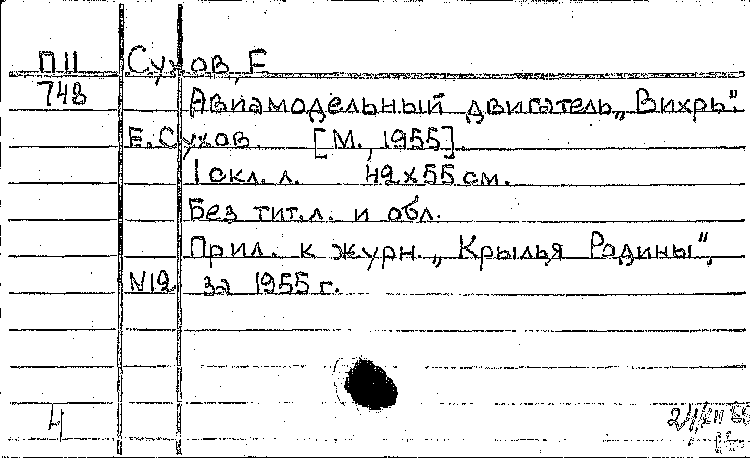 П11 Сухов, Е
748 Авиамодельный двигатель „Вихрь".
Е. Сухов. [М., 1955].
1 скл. л. 42х55 см.
Без тит. л. и обл.
Прил. к журн. „Крылья Родины",
N12 за 1955 г.
Ч